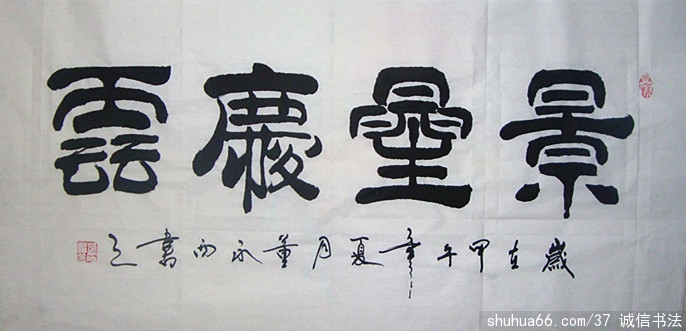 景星慶雲
歲在甲午年夏月董永西書之
shuhua66.com/37 诚信书法